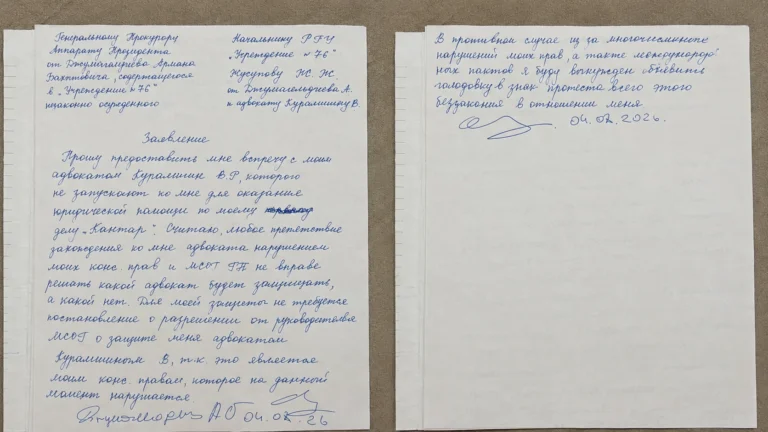 Генеральному Прокурору
Аппарату Президента
от Джумагалиева Армана
Бахитовича, содержащегося
в "Учреждение №76"
незаконно осужденного
Начальнику РГУ
"Учреждение №76"
Жусупову Ж. Ж.
от Джумагельдиева А.
к адвокату Курамшину В.
Заявление
Прошу предоставить мне встречу с моим
адвокатом Курамшин В.Р, которого
не запускают ко мне для оказания
юридической помощи по моему
делу "Кантар". Считаю, любое препятствие
захождения ко мне адвоката нарушением
моих конс. прав и
решать какой адвокат будет защищать,
а какой нет. Для моей защиты не требуется
постановление о разрешении от руководителя
о защите меня адвокатам
Курамшиным В, т.к. это является
моим конс. правам, которое на данный
момент нарушается
04.02.26
В противном случае из за многочисминых
нарушений моих прав, а также международ
ных пактов я буду вынужден объявить
голодовку в знак протеста всего этого
беззакония в отношении меня
04.02.2026.